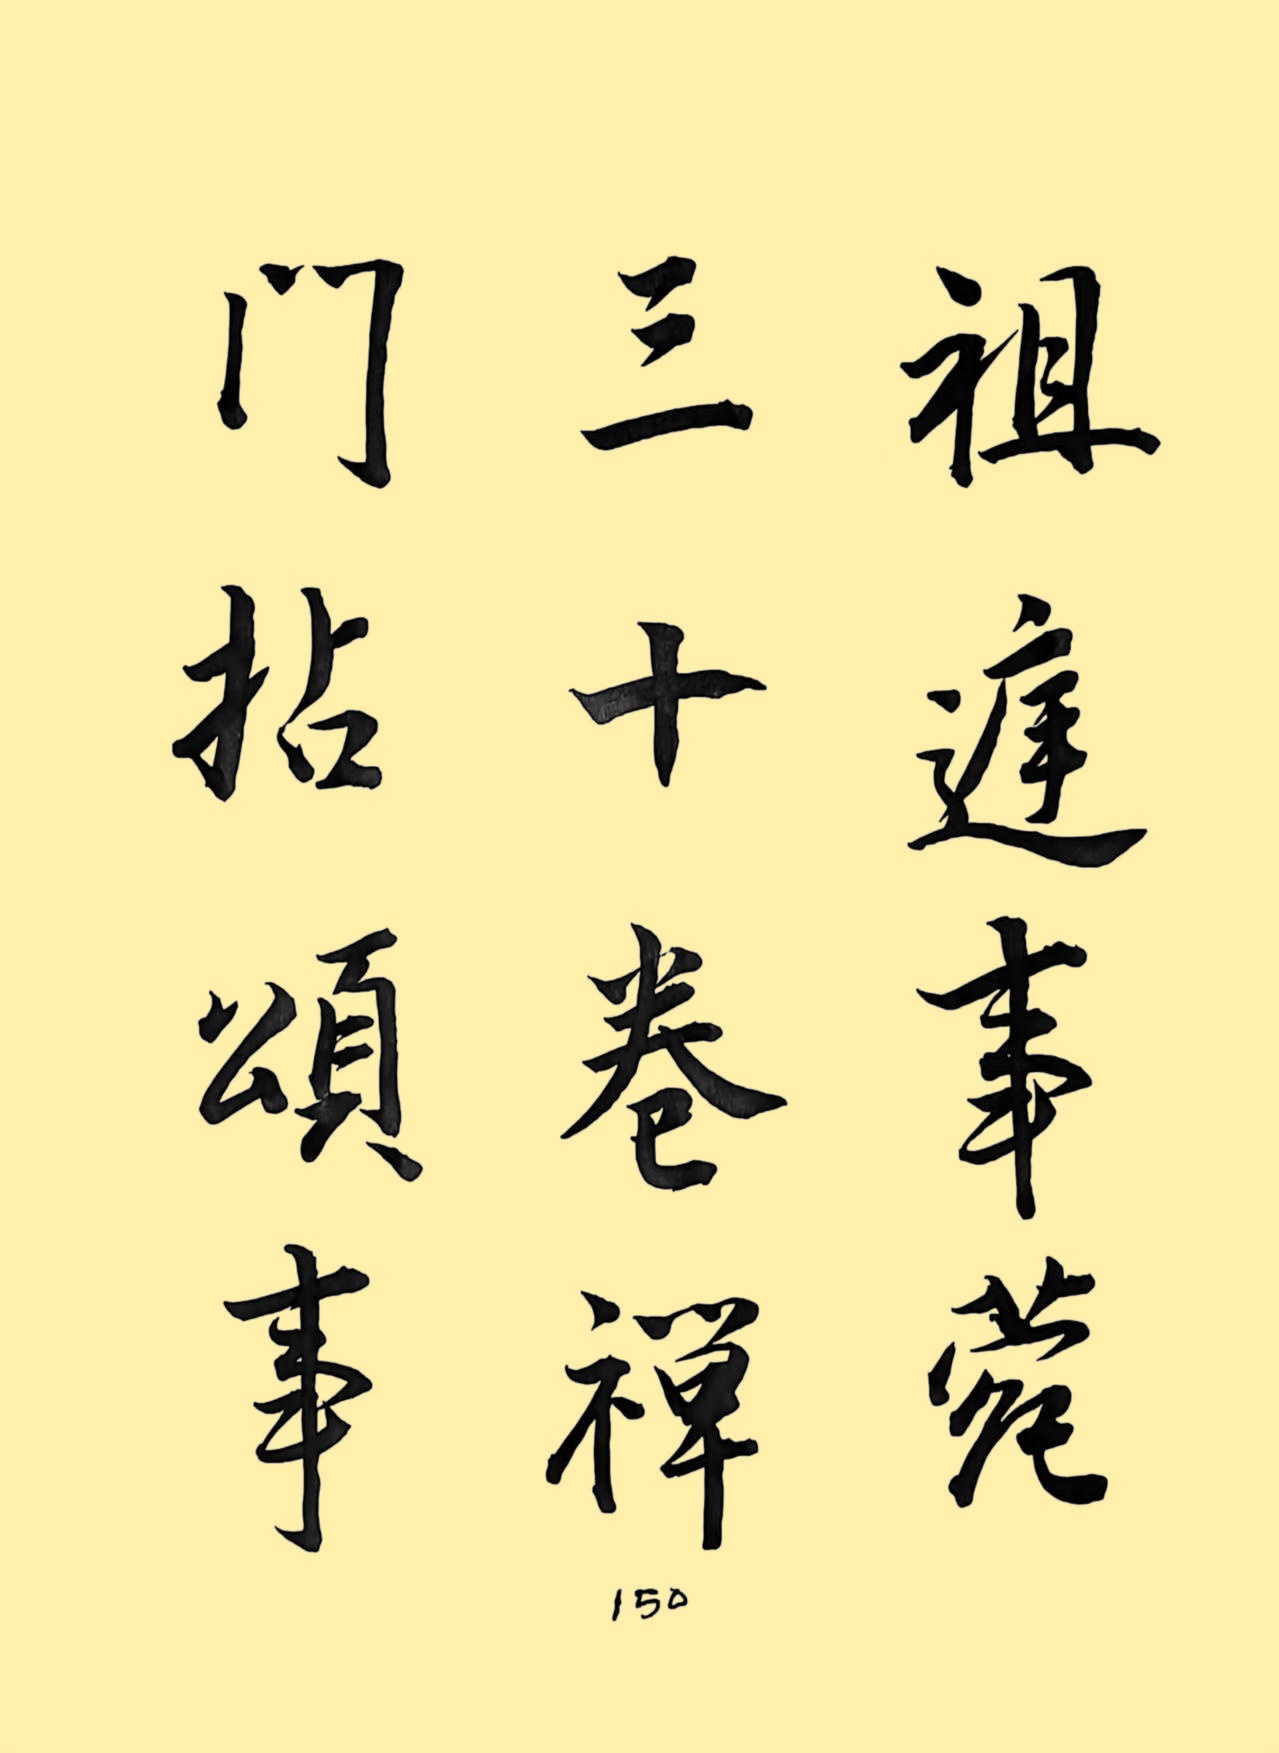 祖庭事苑
三十卷禅
门拈頌事
150